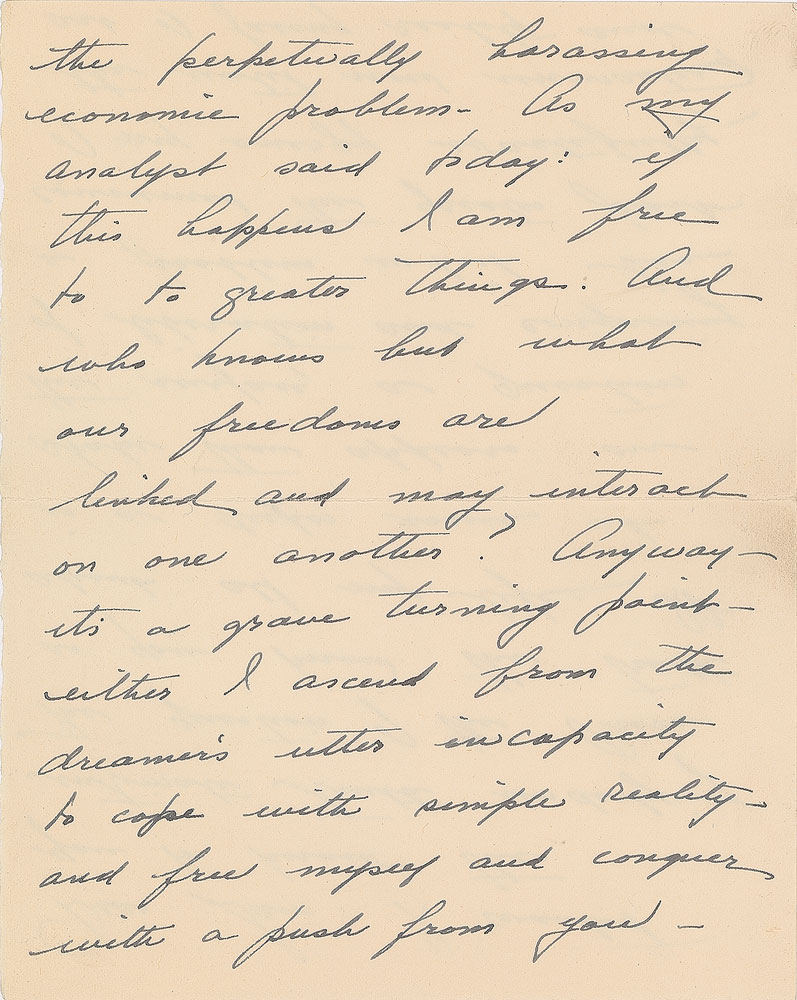 the perpetually harassing
economic problem - As my
analyst said today: if
this happens I am free
to to greater things. And
who knows but what
our freedoms are
linked and may interact
on one another? Anyway -
it's a grave turning point -
either I ascend from the
dreamer's utter incapacity
to cope with simple reality -
and free myself and conquer
with a push from you -